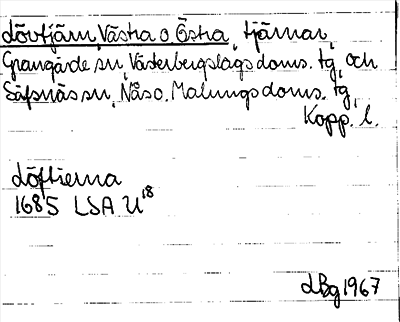 Lövtjärn, Västra o Östra, tjärnar,
Grangärde sn, Västerbergslags doms. tg, och
Säfsnäs sn, Nås o. Malungs doms. tg,
Kopp. l.
Löftierna
1685 LSA U18
LBg 1967